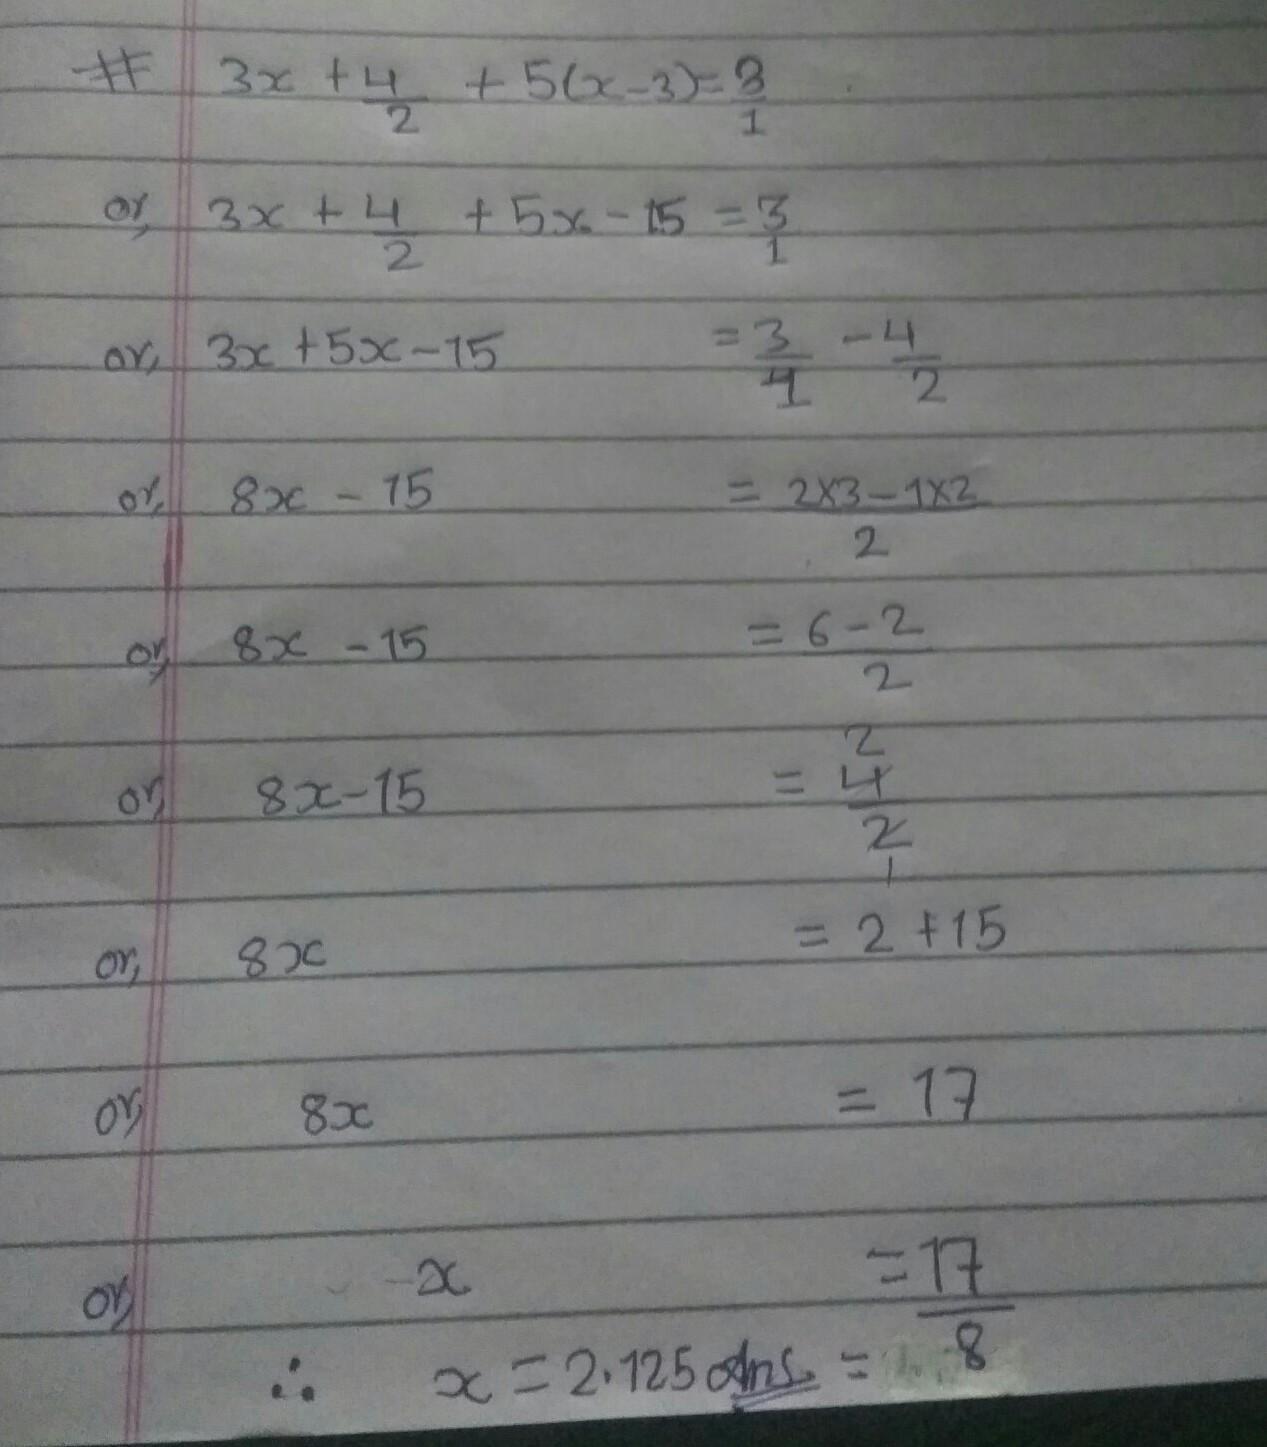 # 3x + 4/2 + 5(x-3) = 3/1
or, 3x + 4/2 + 5x - 15 = 3/1
or, 3x + 5x - 15 = 3/1 - 4/2
or, 8x - 15 = 2×3-1×2/2
or, 8x - 15 = 6-2/2
or, 8x - 15 = 4/2 2 1
or, 8x = 2 + 15
or, 8x = 17
or, x = 17/8
∴ x = 2.125 Ans. =